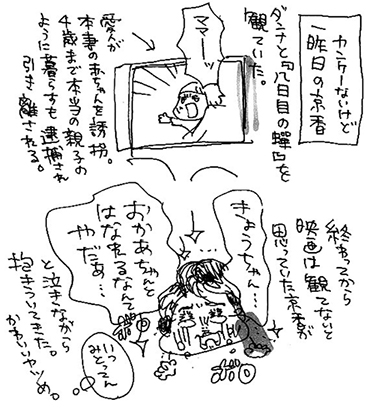 カンケーないけど
一昨日の京香
ダンナと『八日目の蟬』を
観ていた。
ママーッ
愛人が
本妻の赤ちゃんを誘拐。
4歳まで本当の親子の
ように暮らすも逮捕され
引き離される。
終わってから
映画は観てないと
思っていた京香が
きょうちゃん…
おかあちゃんと
はなれるなんて
やだぁ…
ボロ
ボロ
と泣きながら
抱きついてきた。
かわいいヤツめ。
いつ
みとってん